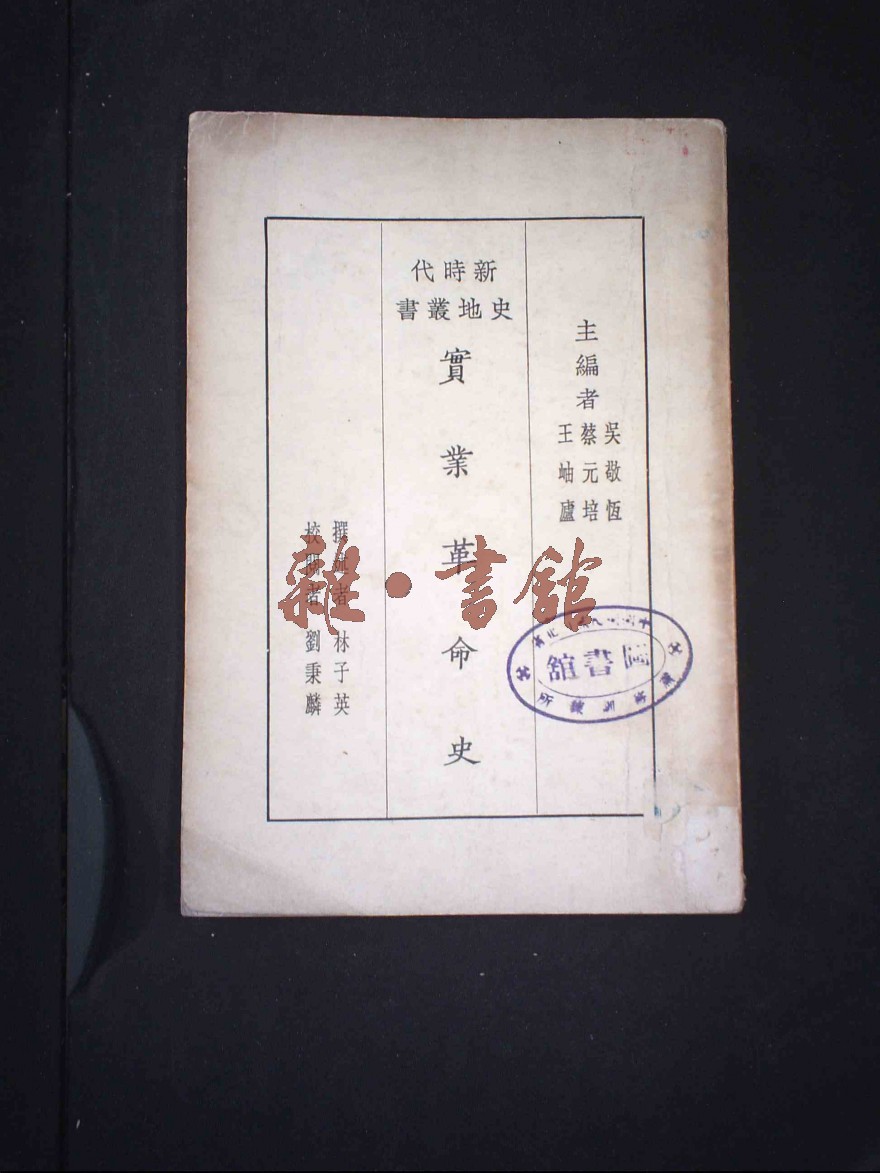 主編者
吳敬恆
蔡元培
王岫廬
新時代
史地叢書
實業革命史
撰述者 林子英
校閱者 劉秉麟
雜·書館
圖書館